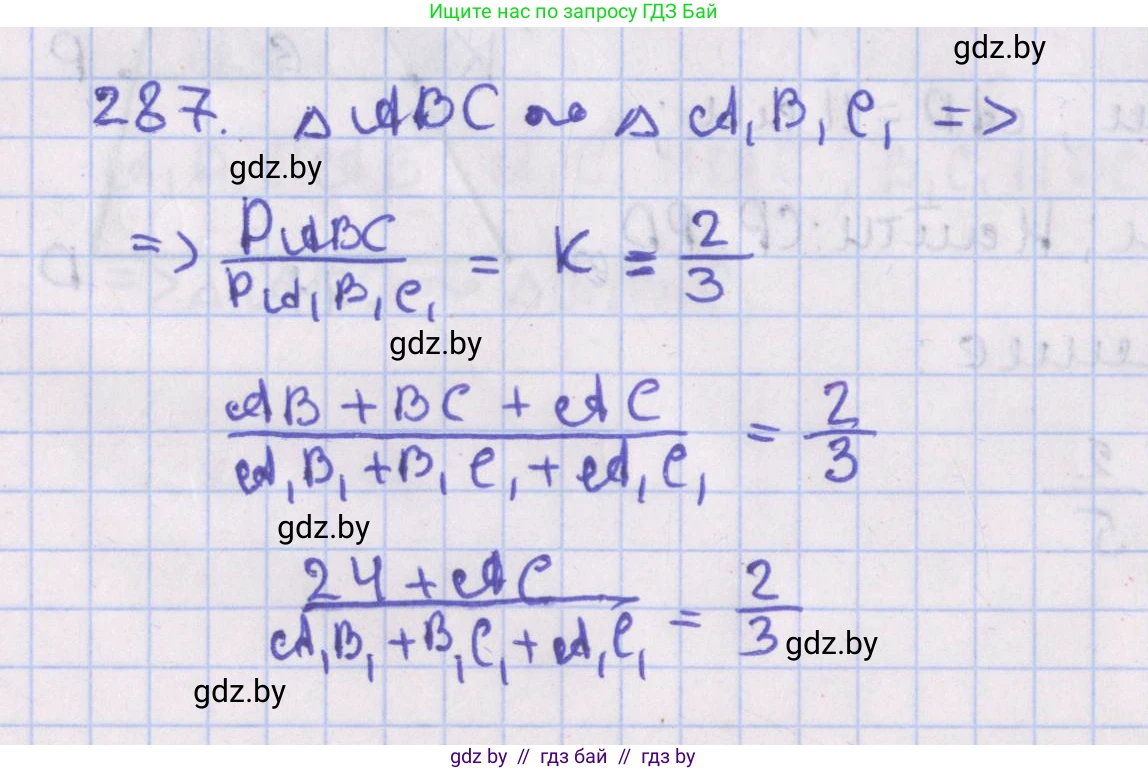 Ищите нас по запросу ГДЗ Бай
gdz.by
287. △ ABC ∾ △ A₁B₁C₁ =>
gdz.by
=> P ABC / P A₁B₁C₁ = K = 2/3
gdz.by
AB + BC + AC / A₁B₁ + B₁C₁ + A₁C₁ = 2/3
gdz.by
24 + AC / A₁B₁ + B₁C₁ + A₁C₁ = 2/3
gdz.by
gdz.by
gdz by // гдз бай // гдз by